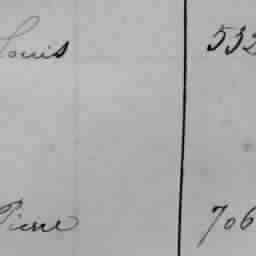 Louis 532
Pierre 706